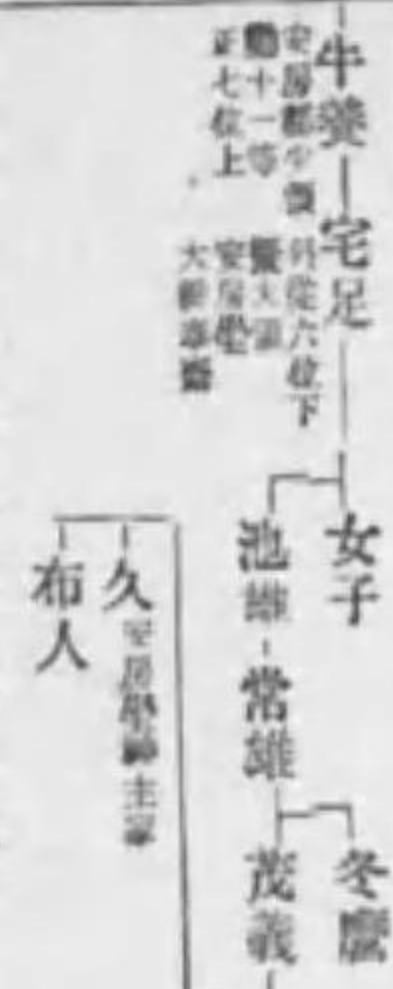 牛養
安房郡少領
勲十一等
正七位上
宅足
外従六位下
大領
安房坐
大神
女子
池雄
常雄
冬麿
茂義
久
安房坐神主
布人